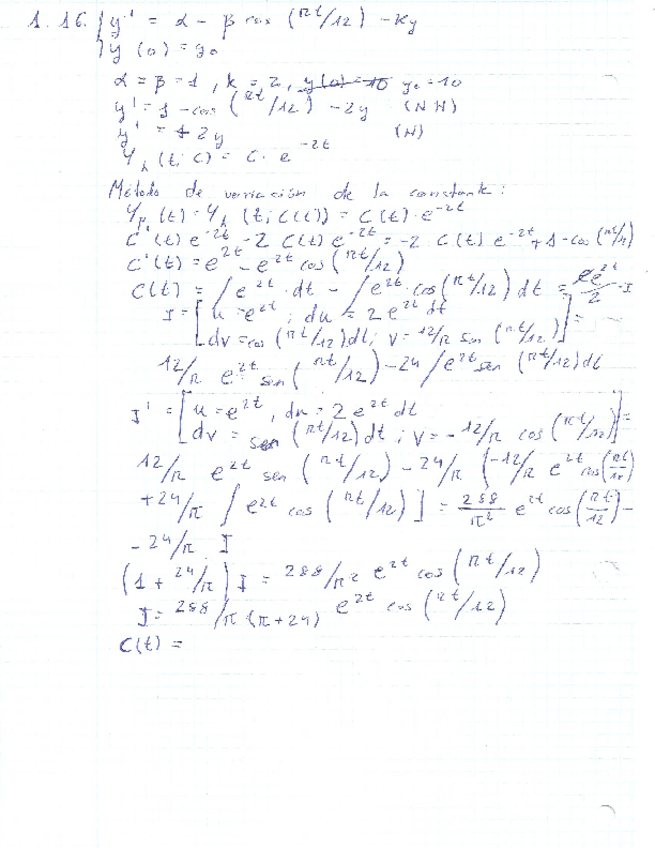 1.16. { y' = α - β cos (πt/12) - Ky
y (0) = y0
α = β = 1, k = 2, y(0) = 10 y0 = 10
y' = 1 - cos (πt/12) - 2y (NH)
y' = + 2y (N)
Yh (t; C) = C · e^-2t
Método de variación de la constante:
Yp (t) = Yh (t; C(t)) = C(t) · e^-2t
C'(t) e^-2t - 2 C(t) e^-2t = -2 C(t) e^-2t + 1 - cos (πt/12)
C'(t) = e^2t - e^2t cos (πt/12)
C(t) = ∫ e^2t · dt - ∫ e^2t · cos (πt/12) dt = e^2t/2 - I
I = [ u = e^2t ; du = 2 e^2t dt
dv = cos (πt/12) dt; v = 12/π sen (πt/12) ] =
12/π e^2t sen (πt/12) - 24 ∫ e^2t sen (πt/12) dt
I' = [ u = e^2t, du = 2 e^2t dt
dv = sen (πt/12) dt ; v = - 12/π cos (πt/12) ] =
12/π e^2t sen (πt/12) - 24/π (-12/π e^2t cos (πt/12)
+ 24/π ∫ e^2t cos (πt/12) ] = 288/π² e^2t cos (πt/12) -
- 24/π I
(1 + 24/π) I = 288/π² e^2t cos (πt/12)
I = 288/π (π+24) e^2t cos (πt/12)
C(t) =